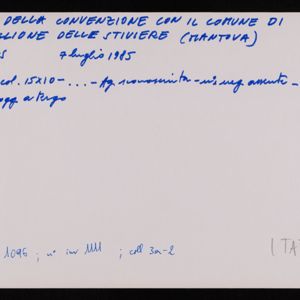 DELLA CONVENZIONE CON IL COMUNE DI
LIONE DELLE STIVIERE (MANTOVA)
S 7 luglio 1985
col. 15x10 - ... - Ag. sconosciuta - n° neg assente -
a tergo
1095 ; n° inv 1111 ; coll 3a-2
(TAT